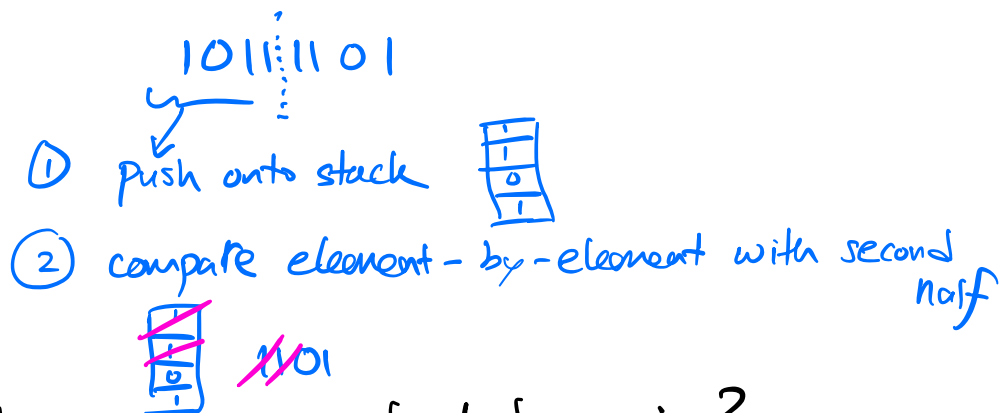 1011 1101
① push onto stack
1
1
0
1
② compare element-by-element with second
half
1
1
0
1
1101
?